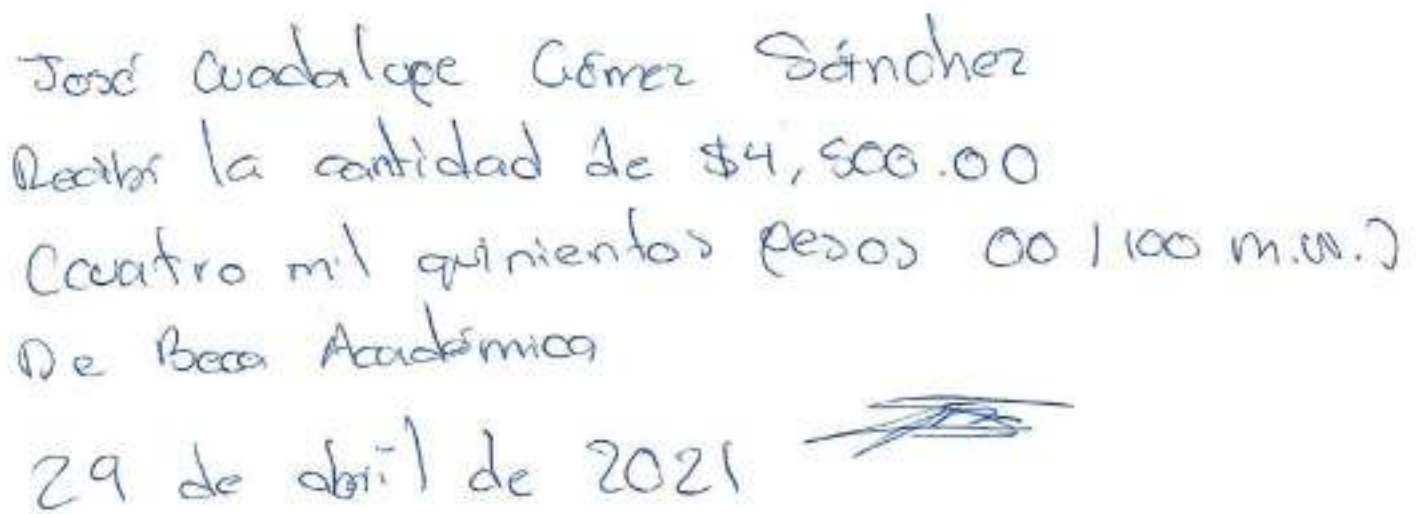 José Guadalupe Gómez Sánchez
Recibí la cantidad de $4,500.00
(cuatro mil quinientos pesos 00/100 m.n.)
De Beca Académica
29 de abril de 2021